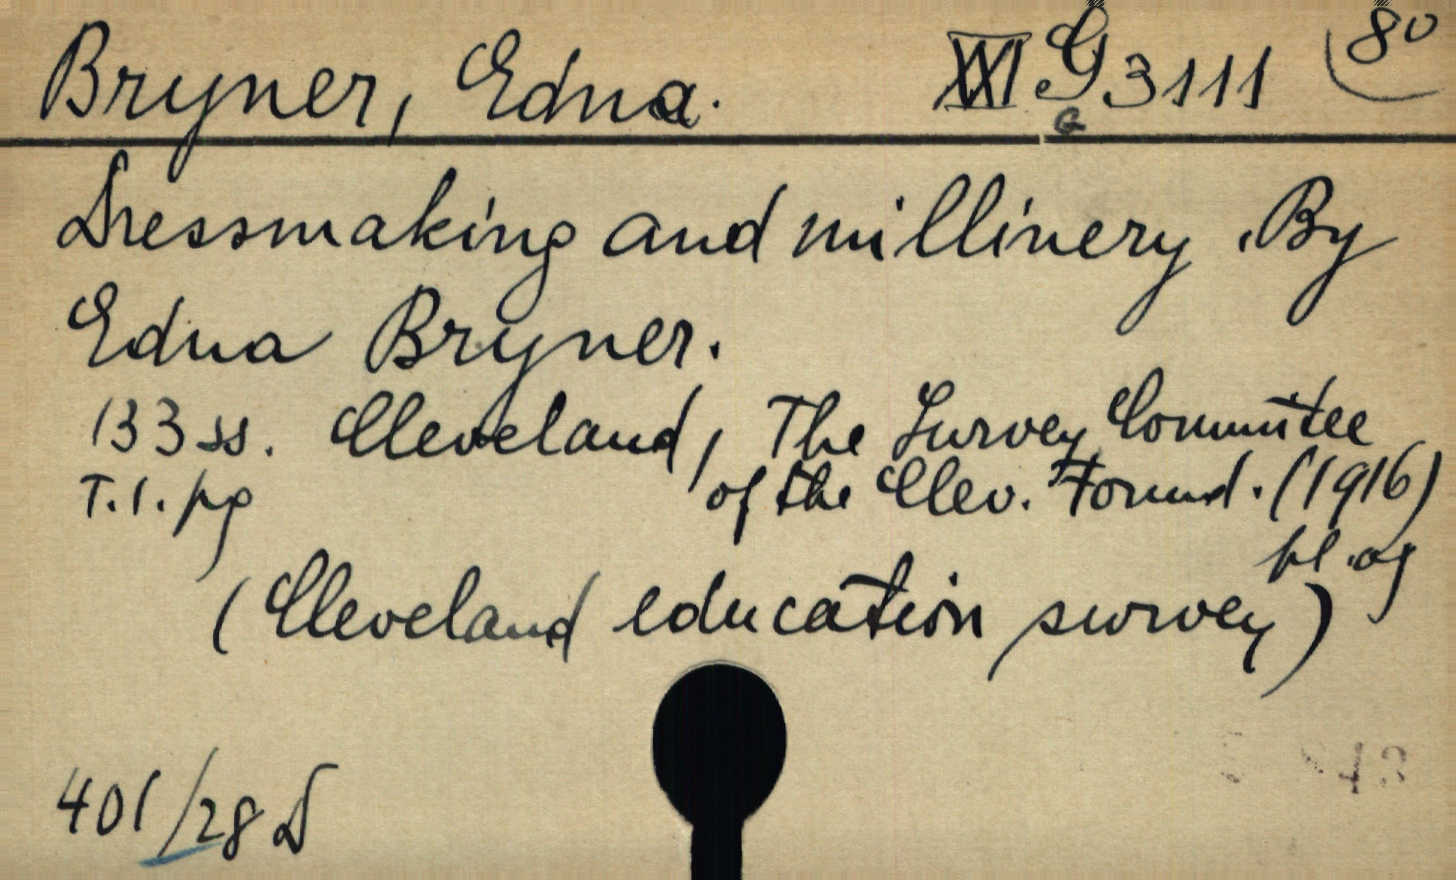 Bryner, Edna. XXI G 3111 8º
G
Dressmaking and millinery. By
Edna Bryner.
133 ss. Cleveland, The Survey Committee
T.l. pg of the Clev. Found. (1916)
(Cleveland education survey)
401/28 D